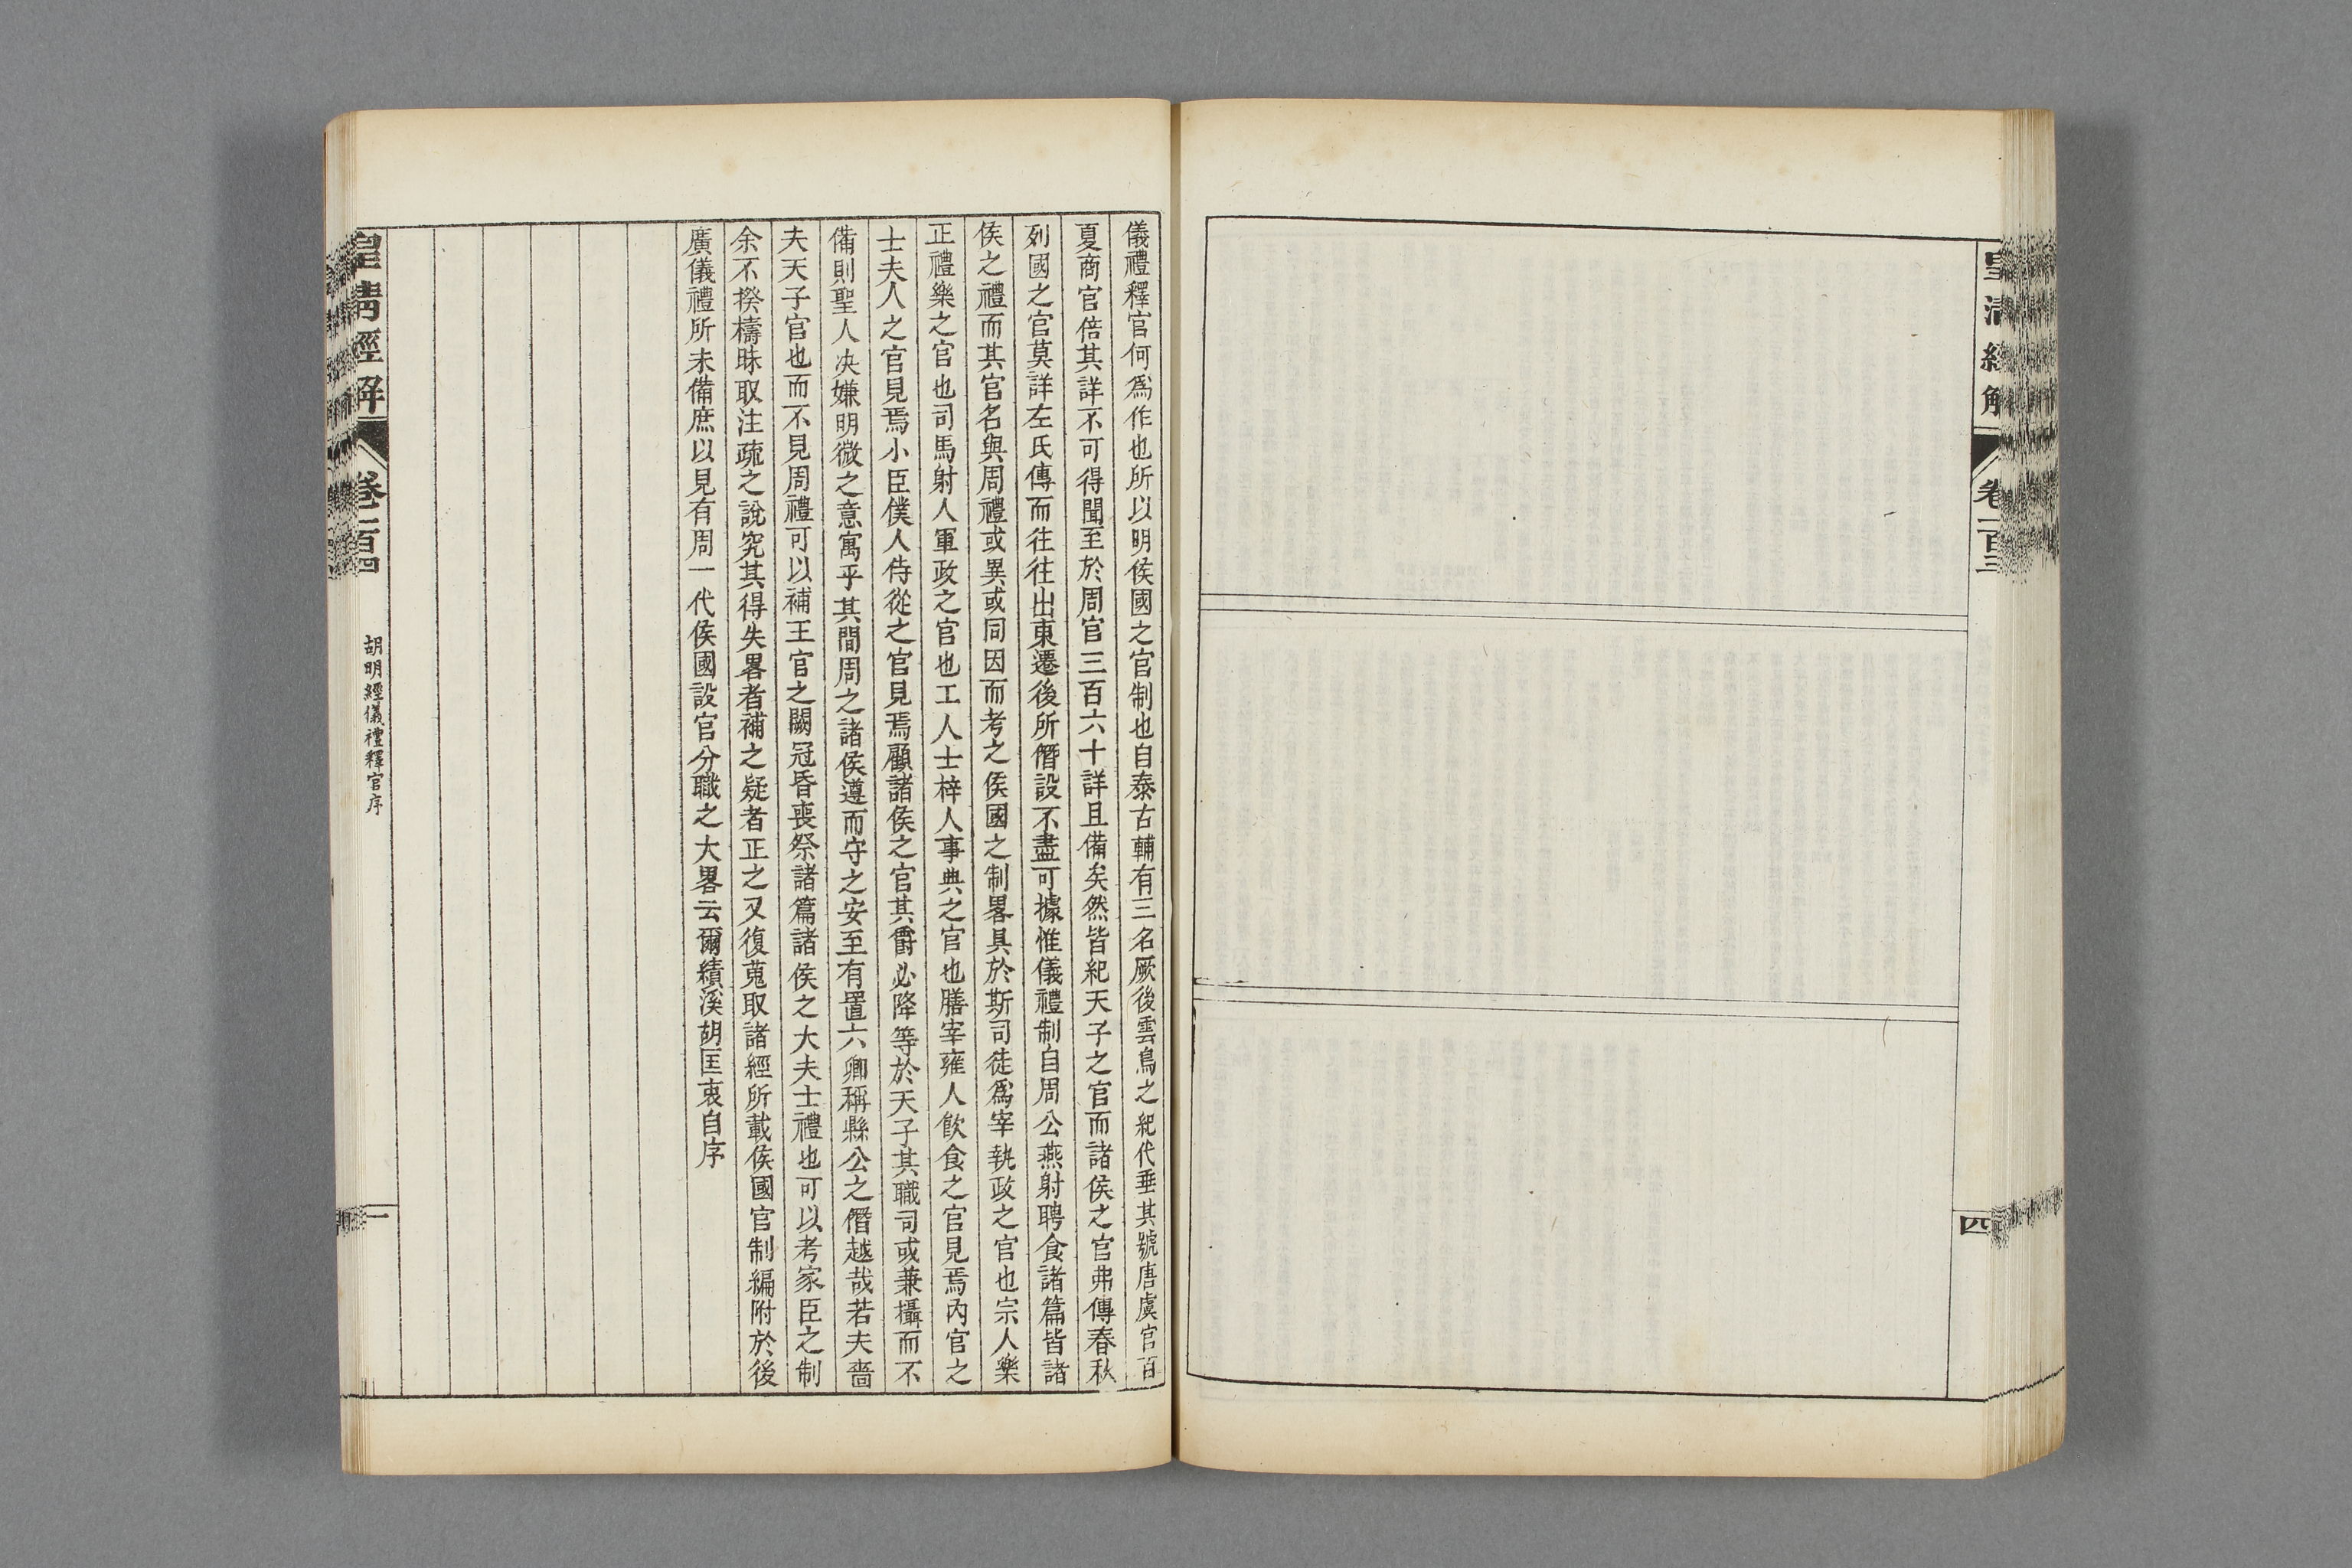 皇清經解
卷一百三
四
儀禮釋官何爲作也所以明侯國之官制也自泰古輔有三名厥後雲鳥之紀代垂其號唐虞官百
夏商官倍其詳不可得聞至於周官三百六十詳且備矣然皆紀天子之官而諸侯之官弗傳春秋
列國之官莫詳左氏傳而往往出東遷後所僭設不盡可據惟儀禮制自周公燕射聘食諸篇皆諸
侯之禮而其官名與周禮或異或同因而考之侯國之制畧具於斯司徒爲宰執政之官也宗人樂
正禮樂之官也司馬射人軍政之官也工人士梓人事典之官也膳宰雍人飮食之官見焉內官之
士夫人之官見焉小臣僕人侍從之官見焉顧諸侯之官其爵必降等於天子其職司或兼攝而不
備則聖人决嫌明微之意寓乎其間周之諸侯遵而守之安至有置六卿稱縣公之僭越哉若夫嗇
夫天子官也而不見周禮可以補王官之闕冠昏喪祭諸篇諸侯之大夫士禮也可以考家臣之制
余不揆檮昧取注疏之說究其得失畧者補之疑者正之又復蒐取諸經所載侯國官制編附於後
廣儀禮所未備庶以見有周一代侯國設官分職之大畧云爾績溪胡匡衷自序
皇淸經解
卷一百四
胡明經儀禮釋官序
一